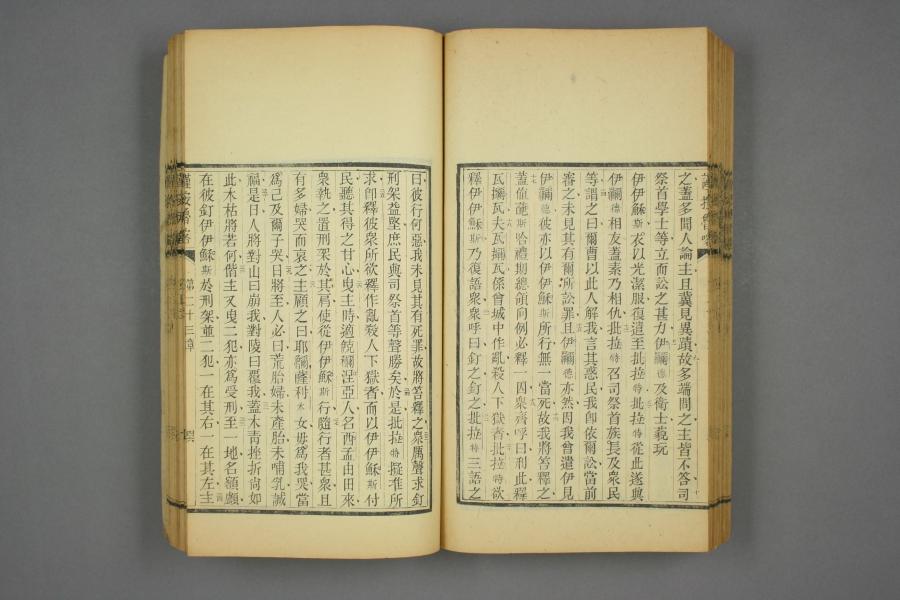 之蓋多聞人論主且冀見異蹟故多端問之主皆不答司
祭首學士等立而訟之甚力伊彌德及衛士藐玩
伊伊穌斯衣以光潔服復遣至批拉特從此遂與
伊彌德相友蓋素乃相仇批拉特召司祭首族長及衆民
等謂之曰爾曹以此人解我言其惑民我卽依爾訟當前
審之未見其有爾所訟罪且伊彌德亦然因我曾遣伊見
伊彌德彼亦以伊伊穌斯所行無一當死故我將笞釋之
蓋値葩斯哈禮期總領向例必釋一囚衆齊呼曰利此釋
瓦喇瓦夫瓦喇瓦係曾城中作亂殺人下獄者批拉特欲
釋伊伊穌斯乃復語衆衆呼曰釘之釘之批拉特三語之
曰彼行何惡我未見其有死罪故將笞釋之衆厲聲求釘
刑架益堅庶民與司祭首等聲勝矣於是批拉特擬准所
求卽釋彼衆所欲釋作亂殺人下獄者而以伊伊穌斯付
民聽其得之甘心曳主時適
衆執之置刑架於其肩使從伊伊穌斯行隨行者甚衆且
有多婦哭而哀之主顧之曰耶
爲己及爾子哭日將至人必曰荒胎婦未產胎未哺乳誠
福是日人將對山曰崩我對陵曰覆我蓋木靑挫折尙如
此木枯將若何偕主又曳二犯亦爲受刑至一地名顱顱
在彼釘伊伊穌斯於刑架並二犯一在其右一在其左主
第二十三章